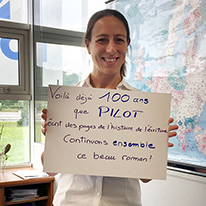 Voilà déjà 100 ans
que PILOT
écrit des pages de l'histoire de l'écriture.
Continuons ensemble
ce beau roman!